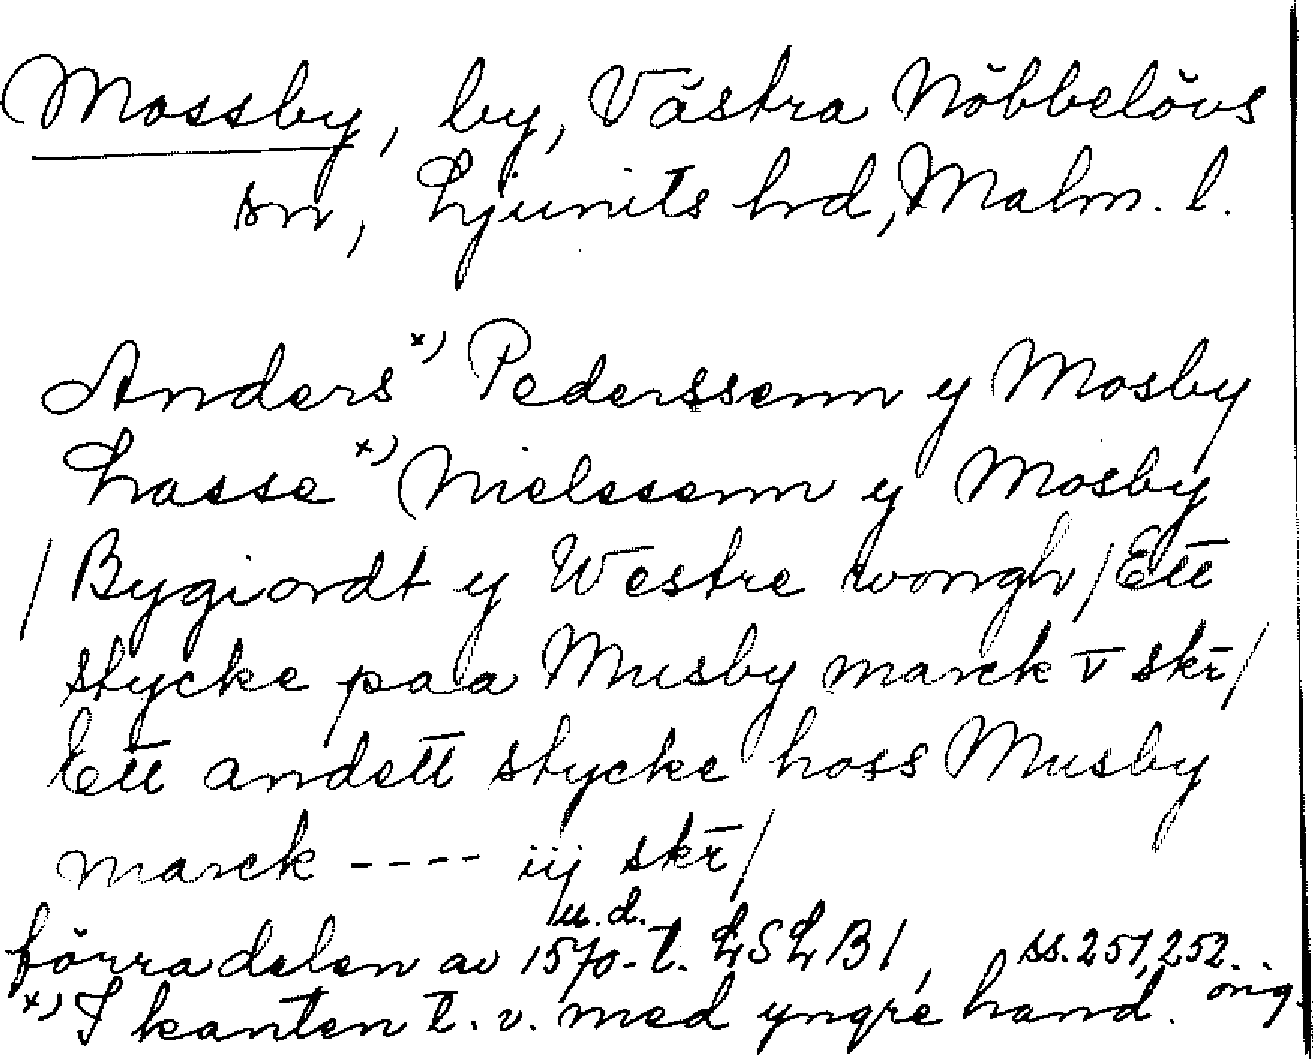 Mossby, by, Västra Nöbbelövs
sn, Ljunits hrd, Malm. l.
Anders x) Pederssenn y Mosby
Lasse x) Nielssenn y Mosby
/ Bygiordt y Westre wongh / Ett
stycke paa Musby marck v skr̄ /
Ett andett stycke hoss Musby
marck ---- iij skr̄ /
u.d.
förra delen av 1570-t. LSLB1, ss. 251, 252..
x) I kanten t.v. med yngre hand. orig.